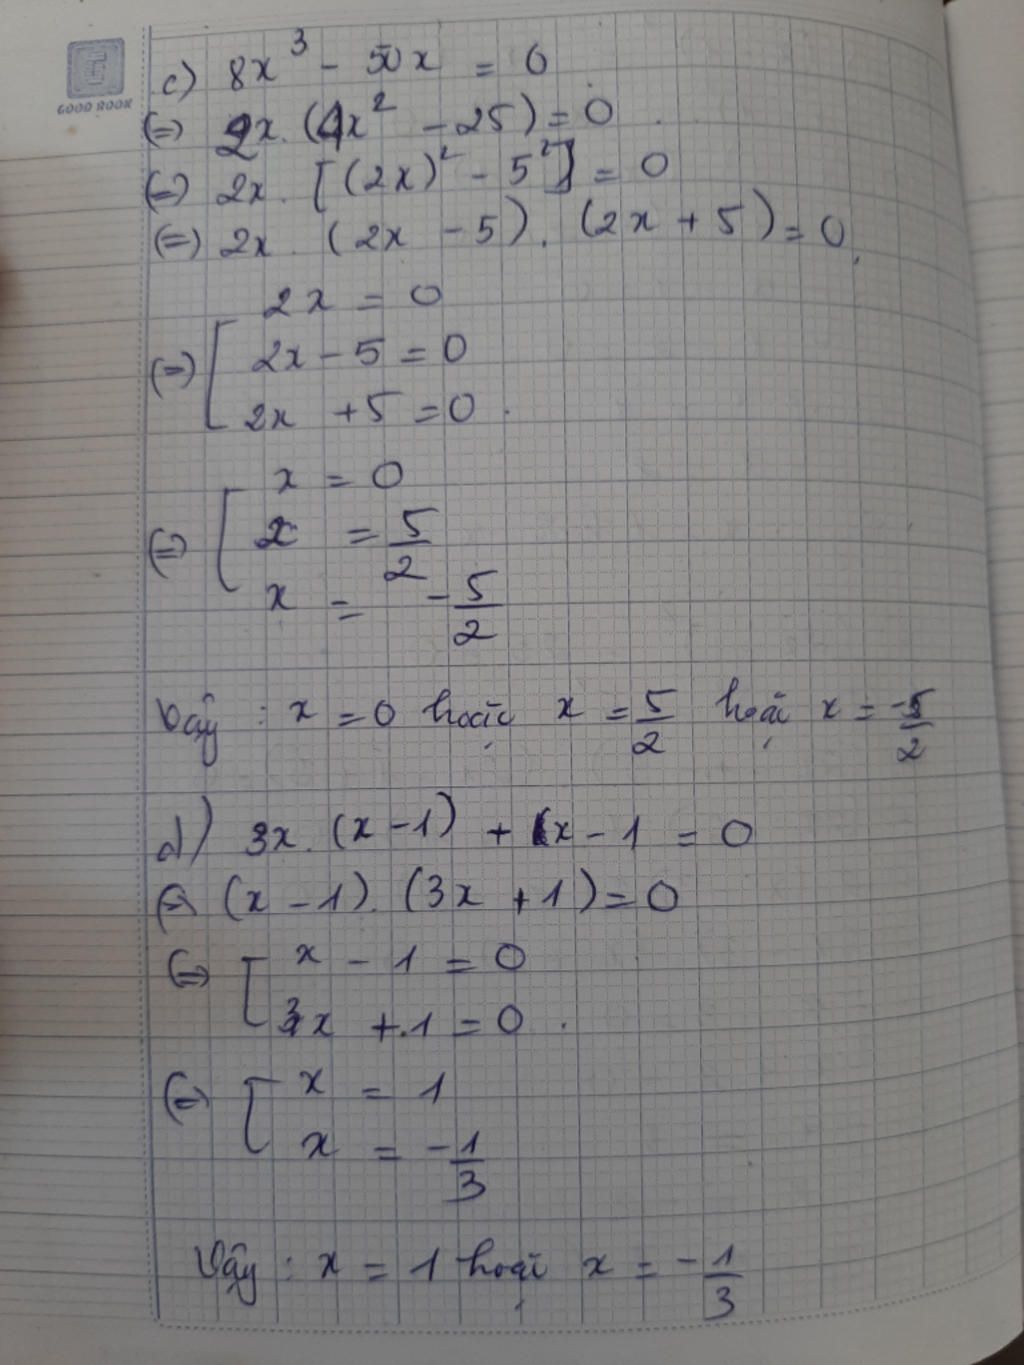 GOOD BOOK
c) 8x³ - 50x = 0
(=) 2x. (4x² - 25) = 0.
(=) 2x. [(2x)² - 5²] = 0
(=) 2x. (2x - 5). (2x + 5) = 0.
2x = 0
(=) [ 2x - 5 = 0
2x + 5 = 0.
x = 0
(=) [ x = 5/2
x = -5/2
Vậy : x = 0 hoặc x = 5/2 hoặc x = -5/2
d) 3x. (x - 1) + (x - 1 = 0
(=) (x - 1). (3x + 1) = 0
(=) [ x - 1 = 0
3x + 1 = 0.
(=) [ x = 1
x = -1/3
Vậy : x = 1 hoặc x = -1/3